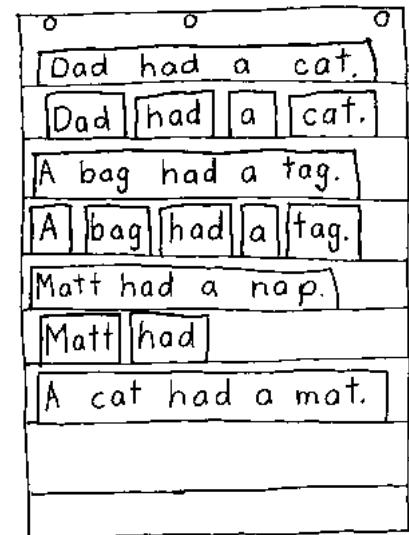 Dad had a cat.
Dad had a cat.
A bag had a tag.
A bag had a tag.
Matt had a nap.
Matt had
A cat had a mat.